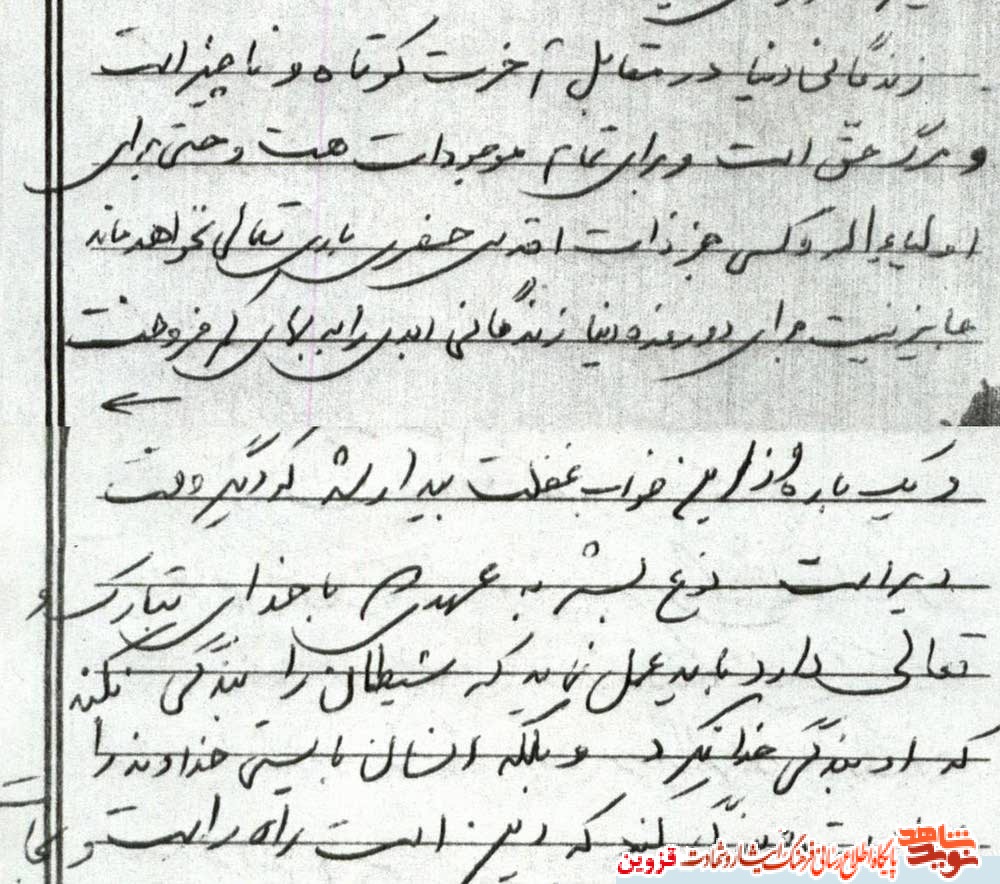 زندگانی دنیا در مقابل آخرت کوتاه و ناچیز است
و مرگ حق است و برای تمام موجودات هست و حتی برای
اولیاء الله و کسی جز ذات اقدس حضرت باری تعالی نخواهد ماند
جایز نیست برای دو روزه دنیا زندگانی ابدی را به بهای کم فروخت
و یک باره از این خواب غفلت بیدار شد که دیگر وقت
دیر است نوع بشر به عهدی که با خدای تبارک و
تعالی دارد باید عمل نماید که شیطان را بندگی نکند
که او بندگی خدا نکرد و بلکه انسان بایستی خداوند را
بندگی کند که این است راه راست و
نوید شاهد
پایگاه اطلاع رسانی فرهنگ ایثار و شهادت قزوین